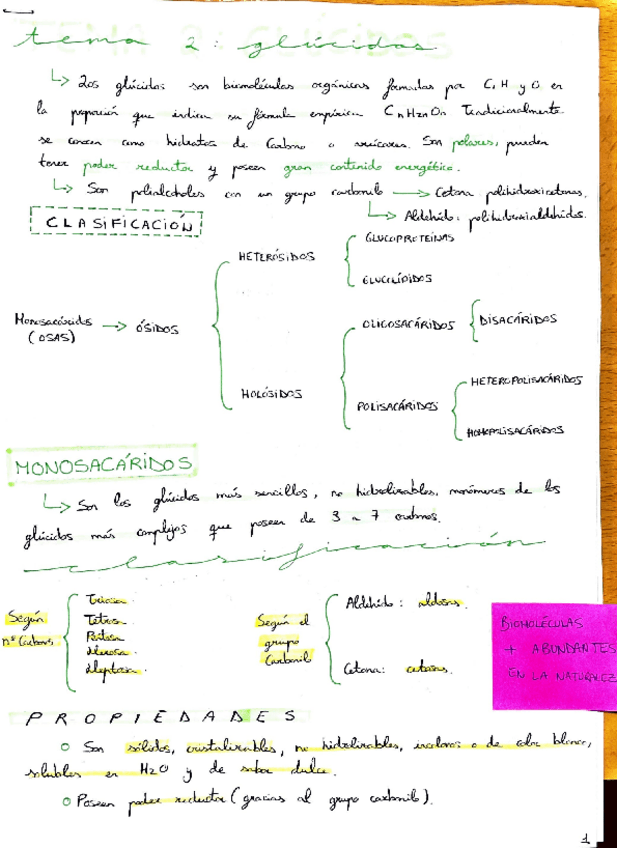 tema 2: glúcidos
↳ Los glúcidos son biomoléculas orgánicas formadas por C, H y O en
la proporción que indica su fórmula empírica CnH2nOn. Tradicionalmente
se conocen como hidratos de Carbono o azúcares. Son polares, pueden
tener poder reductor y poseen gran contenido energético.
↳ Son polialcoholes con un grupo carbonilo → Cetona: polihidroxicetonas.
↳ Aldehído: polihidroxialdehídos.
CLASIFICACIÓN
GLUCOPROTEÍNAS
HETERÓSIDOS
GLUCOLÍPIDOS
Monosacáridos → ÓSIDOS
(OSAS)
OLIGOSACÁRIDOS { DISACÁRIDOS
HOLÓSIDOS
HETEROPOLISACÁRIDOS
POLISACÁRIDOS
HOMOPOLISACÁRIDOS
MONOSACÁRIDOS
↳ Son los glúcidos más sencillos, no hidrolizables, monómeros de los
glúcidos más complejos que poseen de 3 a 7 carbonos.
clasificación
Según
nº Carbonos
Triosa.
Tetrosa.
Pentosa.
Hexosa.
Heptosa.
Según el
grupo
Carbonilo
Aldehído: aldosas.
Cetona: cetosas.
BIOMOLÉCULAS
+ ABUNDANTES
EN LA NATURALEZ
PROPIEDADES
○ Son sólidos, cristalizables, no hidrolizables, incoloros o de color blanco,
solubles en H2O y de sabor dulce.
○ Poseen poder reductor (gracias al grupo carbonilo).
1